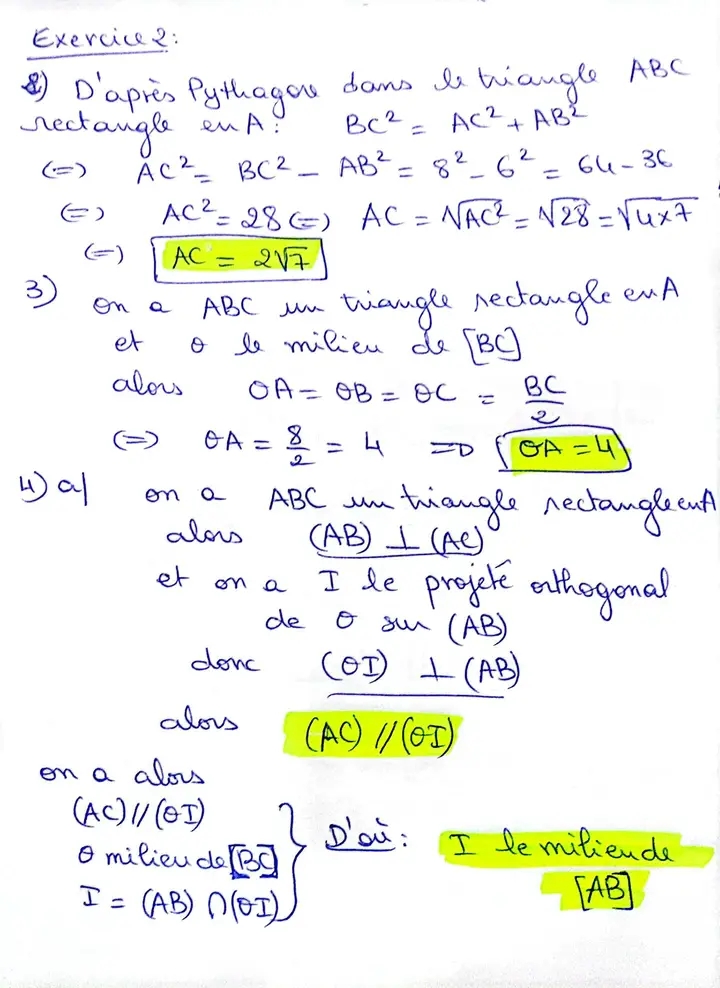 Exercice 2:
2) D'après Pythagore dans le triangle ABC
rectangle en A : BC² = AC² + AB²
(=) AC² = BC² - AB² = 8² - 6² = 64 - 36
(=) AC² = 28 (=) AC = √AC² = √28 = √4×7
(=) AC = 2√7
3) on a ABC un triangle rectangle en A
et O le milieu de [BC]
alors OA = OB = OC = BC/2
(=) OA = 8/2 = 4 => OA = 4
4) a/ on a ABC un triangle rectangle en A
alors (AB) ⊥ (AC)
et on a I le projeté orthogonal
de O sur (AB)
donc (OI) ⊥ (AB)
alors (AC) // (OI)
on a alors
(AC) // (OI)
O milieu de [BC]
I = (AB) ∩ (OI)
D'où : I le milieu de
[AB]